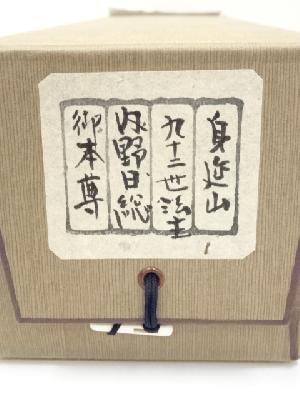 身延山
九十二世法主
内野日総
御本尊